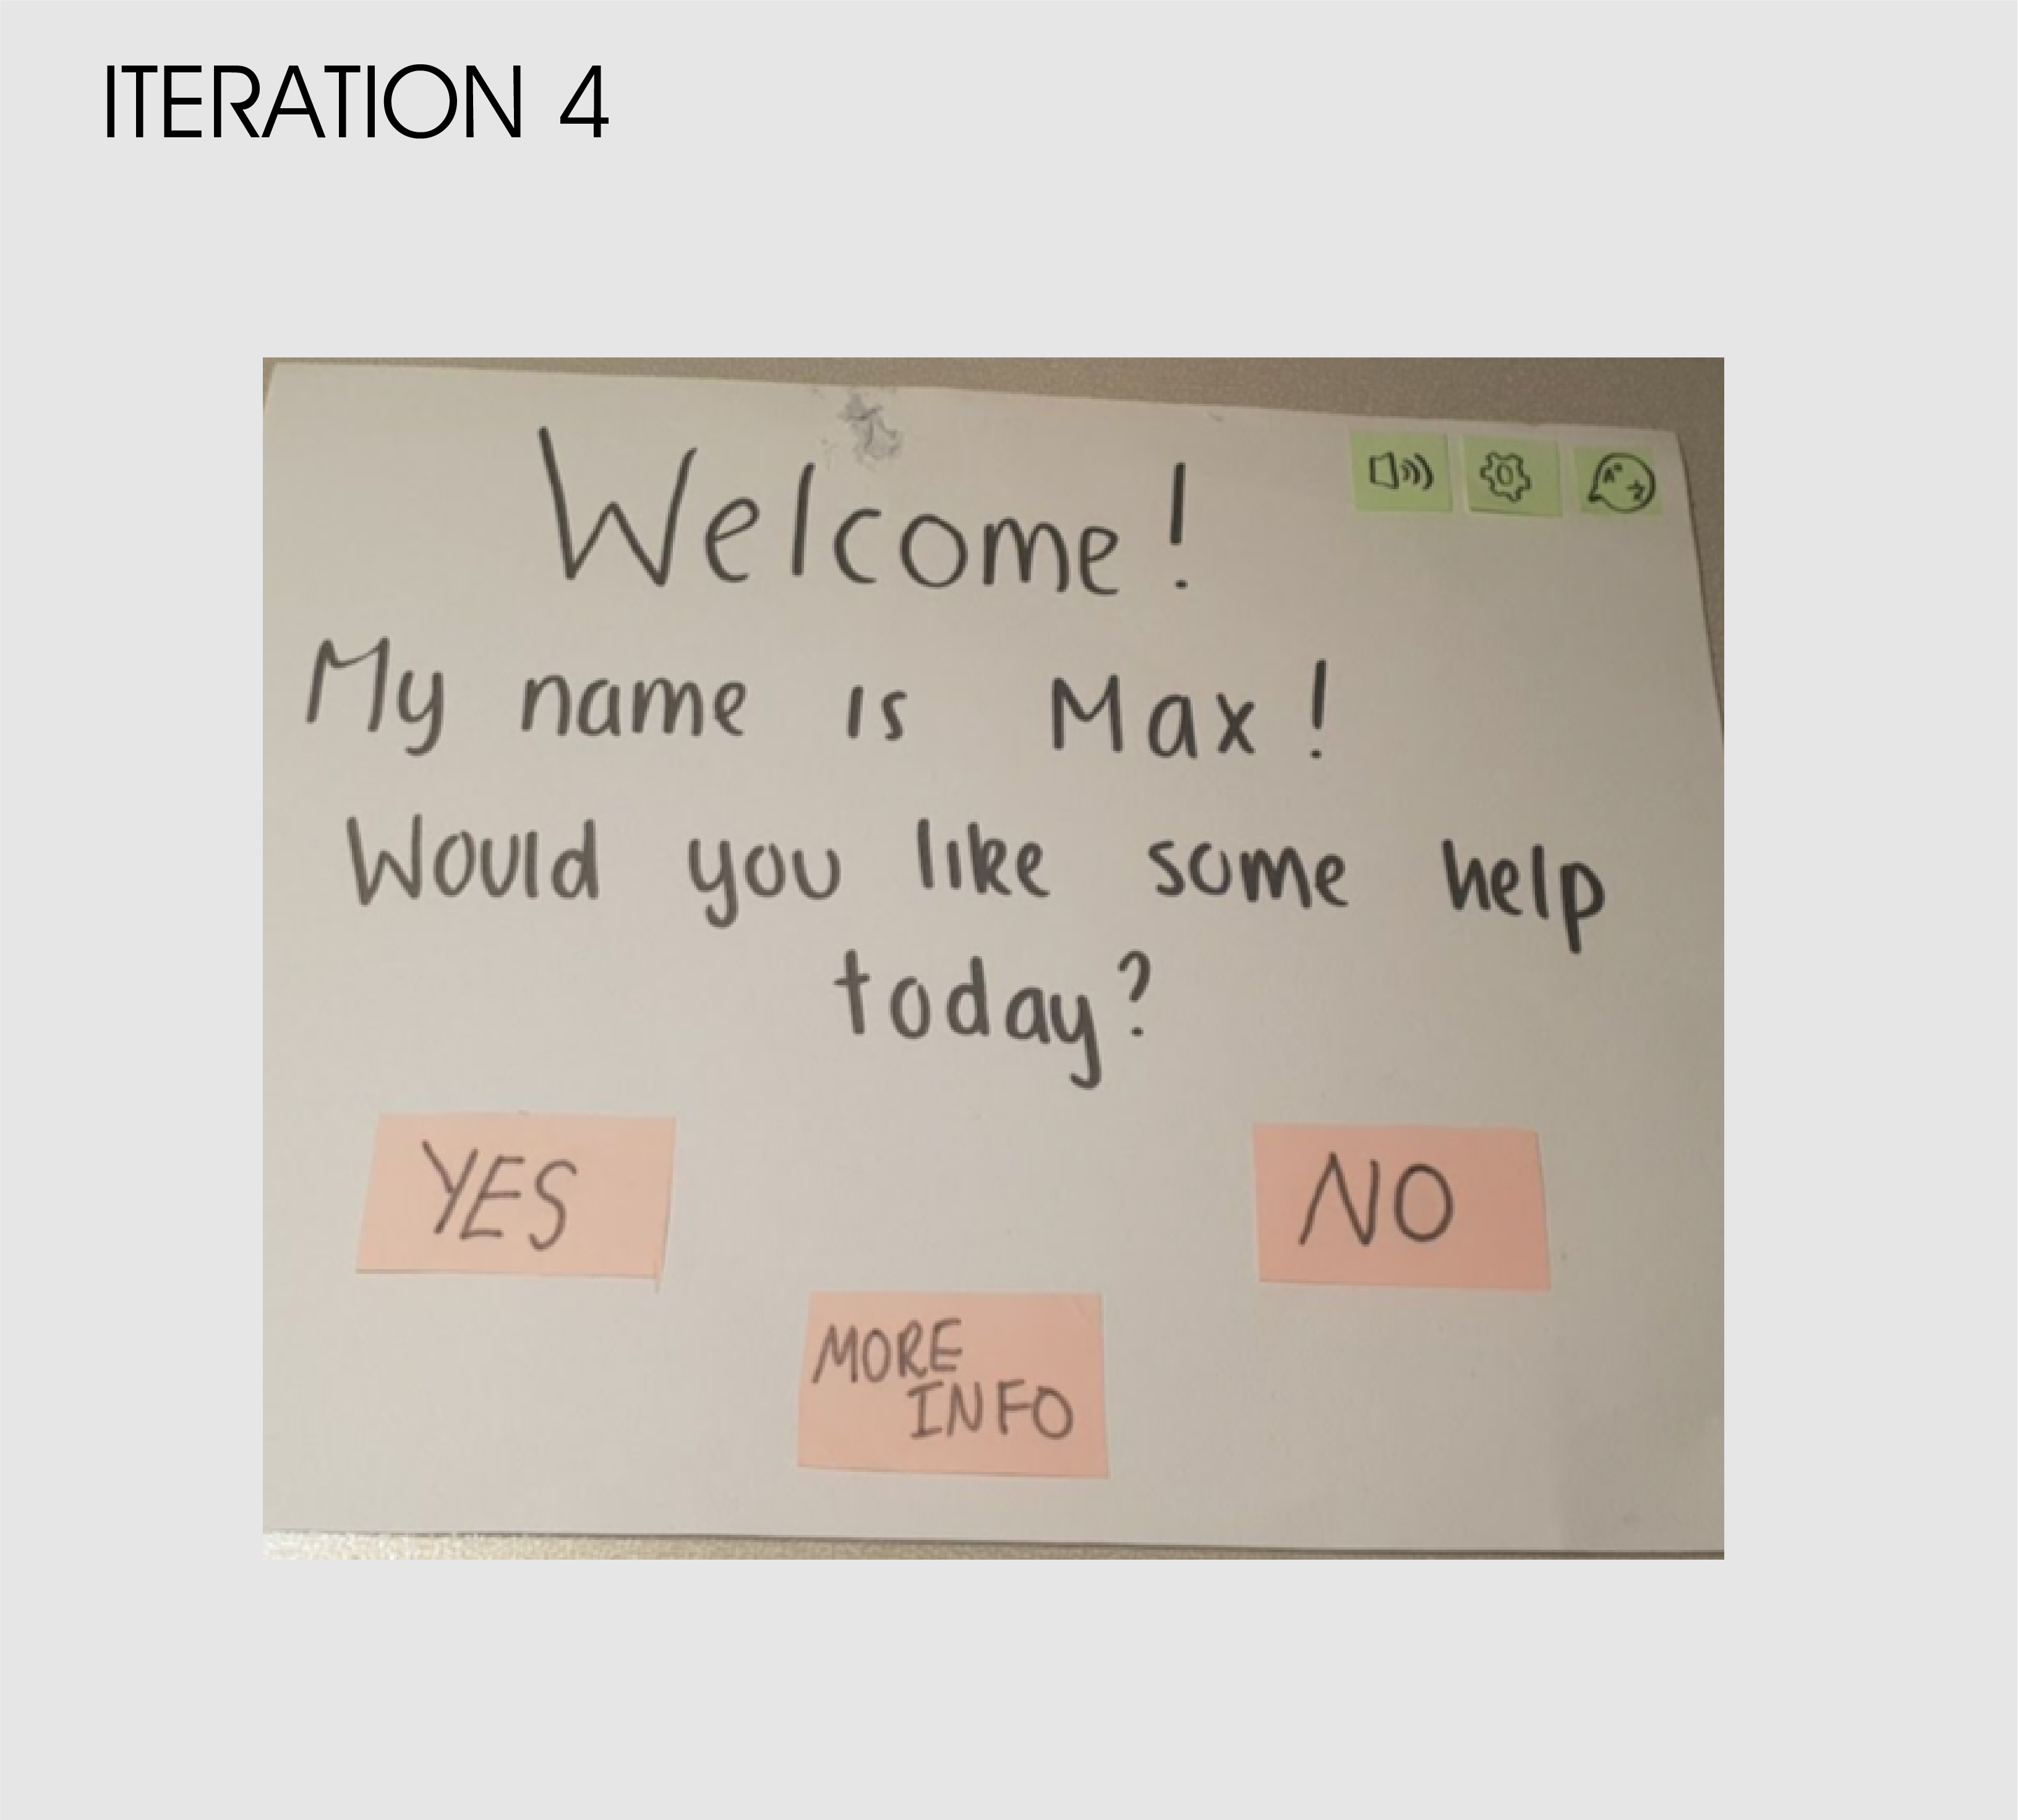 ITERATION 4
Welcome!
My name is Max!
Would you like some help
today?
YES
NO
MORE
INFO